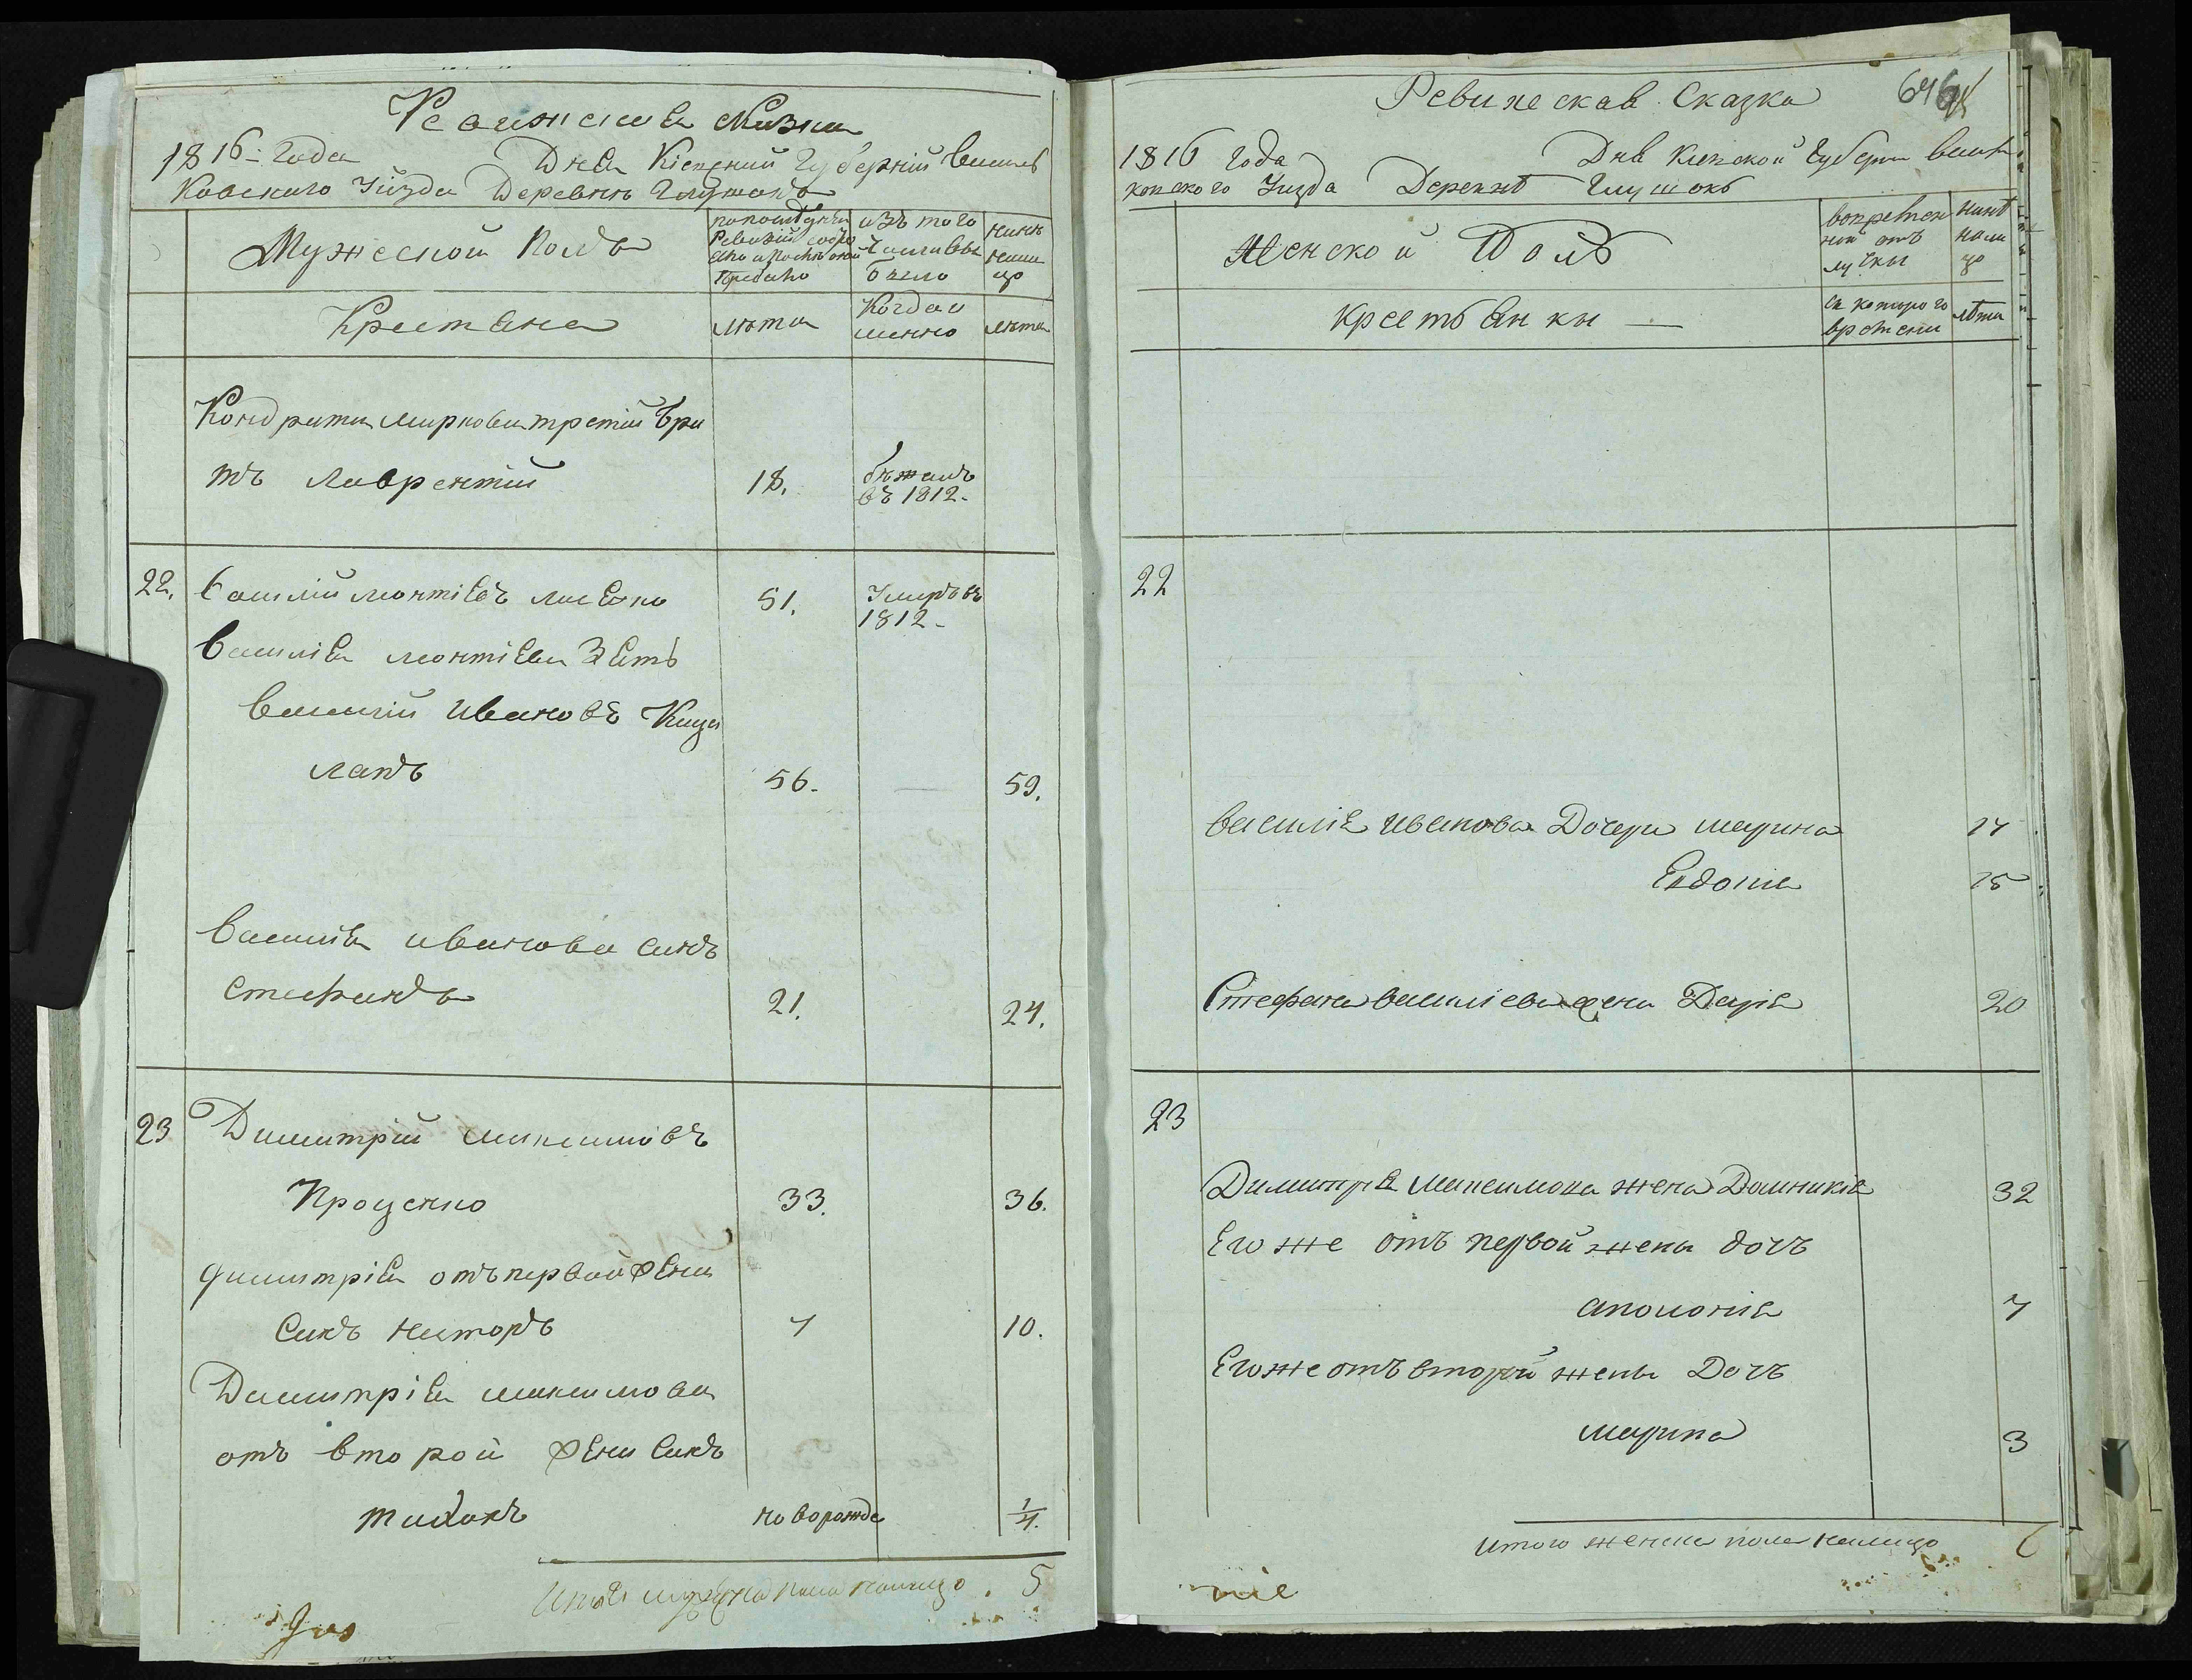 Ревижская Сказка
1816: года Дня Кіевскии Губерніи Василь
ковскаго Уѣзда Деревнѣ Глушокъ
Мужеской полъ
по последней Ревизіи состояло и послѣ оной прибыло
изъ того числа выбыло
нинѣ на лицо
Крестяне
лѣта
Когда именно
лѣта
Кондрата Маркова третій бра
тъ Лаврентій 18. бѣжалъ въ 1812-
22. Василій Леонтіевъ 51. Умръ въ 1812-
Василія Леонтіева Зять
Василій Ивановъ Кица
лапъ 56. — 59.
Василія Иванова синъ
Стефанъ 21. 24.
23 Димитрій Максимовъ
Проценко 33. 36.
Димитрія отъ первой жени
Синъ Никторъ 7 10.
Димитрія Максимова
отъ второй жени Синъ
Тихонъ новорожде 1/4.
Итого мужеска пола налицо . 5
Ревизская Сказка 646
1816 года Дня Кіевской Губерніи Василь
ковского Уизда Деревнѣ Глушокъ
Женской Полъ
во временной отлучки
нинѣ на лицо
Крестьянки —
съ которого времени
лѣта
22
Василія Иванова Дочери Марина 17
Евдокія 15
Стефана Василіева жена Дарія 20
23
Димитрія Максимова жена Домникія 32
Его же отъ первой жены дочъ
Аполонія 7
Его же отъ второй жены Дочъ
Марина 3
Итого женска пола налицо 6
nie